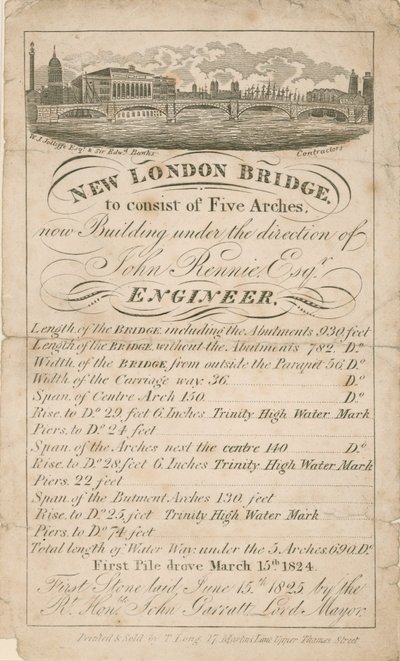 W. J. Jolliffe Esqr. & Sir Edwd. Banks Contractors
NEW LONDON BRIDGE,
to consist of Five Arches,
now Building under the direction of
John Rennie, Esqr.
ENGINEER.
Length of the BRIDGE, including the Abutments 930, feet
Length of the BRIDGE, without the Abutments 782, Do.
Width of the BRIDGE, from outside the Parapit 56, Do.
Width of the Carriage way 36, Do.
Span of Centre Arch 150, Do.
Rise, to Do. 29, feet 6, Inches Trinity High Water Mark
Piers, to Do. 24 feet
Span of the Arches next the centre 140 Do.
Rise, to Do. 28, feet 6, Inches Trinity High Water Mark
Piers, 22 feet
Span of the Butment Arches 130, feet
Rise, to Do. 25, feet Trinity High Water Mark
Piers, to Do. 74 feet
Total length of Water Way, under the 5 Arches, 690, Do.
First Pile drove March 15th 1824.
First Stone laid, June 15th 1825 by the
Rt. Honble. John Garratt Lord Mayor.
Printed & Sold by T. Long, 17, Martins Lane Upper Thames Street